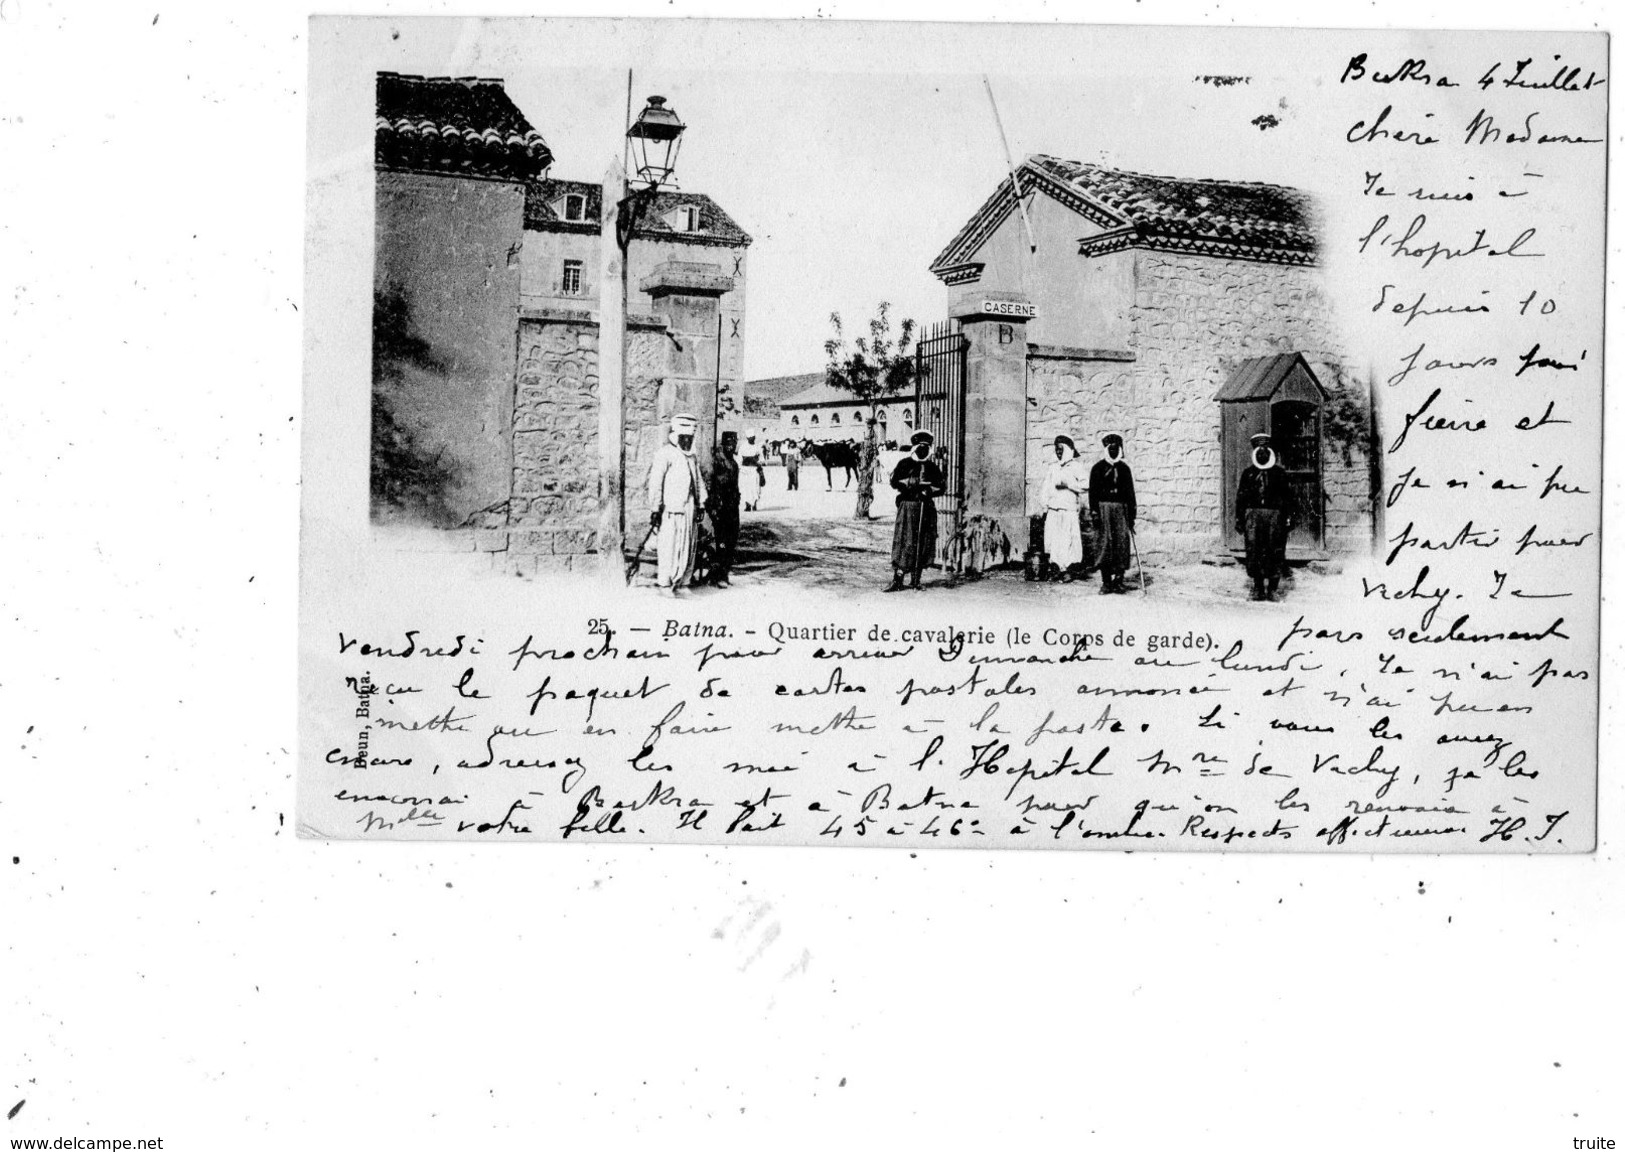 CASERNE
B
Biskra 4 Juillet
Chère Madame
Je suis à
l'hopital
depuis 10
jours pour
fièvre et
je n'ai pu
partir pour
Vichy. Je
pars seulement
25. — Batna. - Quartier de cavalerie (le Corps de garde).
Beun, Batna.
vendredi prochain pour arriver Dimanche ou lundi. Je n'ai pas
reçu le paquet de cartes postales annoncé et n'ai pu en
mettre ou en faire mettre à la poste. Si vous les avez
encore, adressez les moi à l'Hopital Mre de Vichy, je les
enverrai à Biskra et à Batna pour qu'on les renvoie à
Melle votre fille. Il fait 45 à 46° à l'ombre. Respects affectueux H. J.
www.delcampe.net
truite